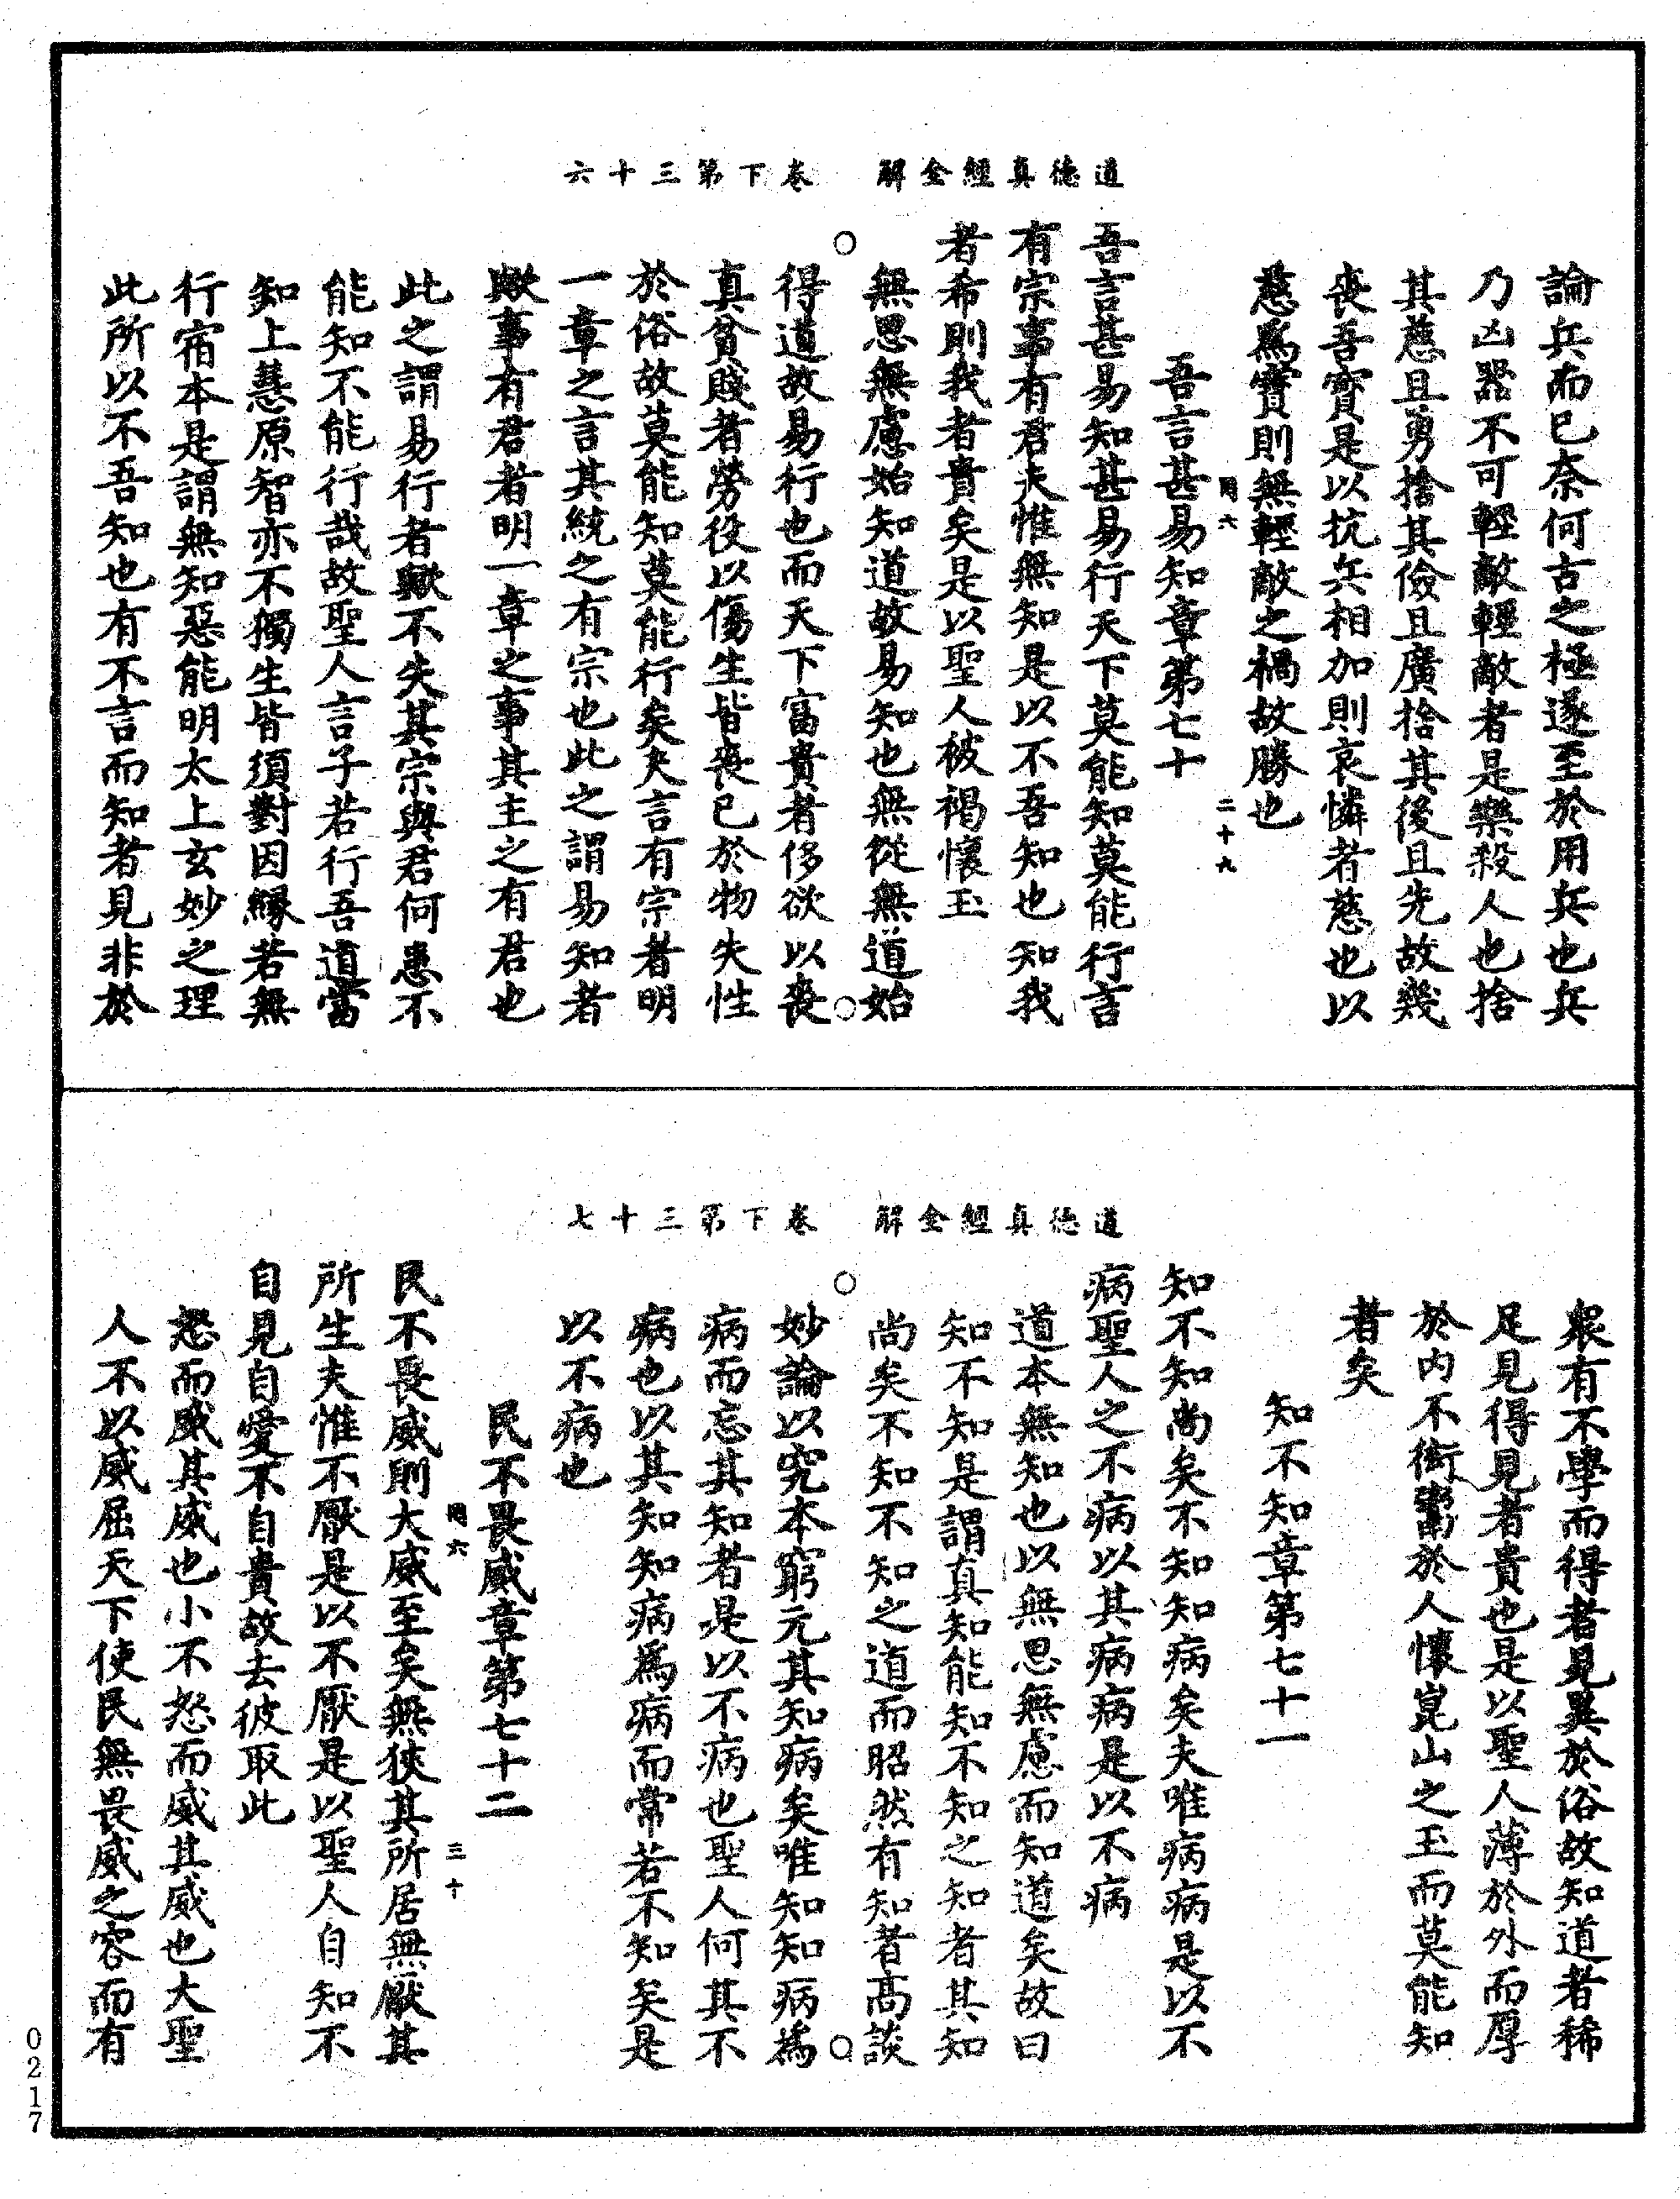 道德真經全解　卷下第三十六
論兵而已奈何古之極遂至於用兵也兵
乃凶器不可輕敵輕敵者是樂殺人也捨
其慈且勇捨其儉且廣捨其後且先故幾
喪吾寶是以抗兵相加則哀憐者慈也以
慈爲寶則無輕敵之禍故勝也
罔六　二十九
吾言甚易知章第七十
吾言甚易知甚易行天下莫能知莫能行言
有宗事有君夫惟無知是以不吾知也知我
者希則我者貴矣是以聖人被褐懷玉
無思無慮始知道故易知也無從無道始
得道故易行也而天下富貴者侈欲以喪
真貧賤者勞役以傷生皆喪已於物失性
於俗故莫能知莫能行矣夫言有宗者明
一章之言其統之有宗也此之謂易知者
歟事有君者明一章之事其主之有君也
此之謂易行者歟不失其宗與君何患不
能知不能行哉故聖人言子若行吾道當
知上慧原智亦不獨生皆須對因緣若無
行宿本是謂無知惡能明太上玄妙之理
此所以不吾知也有不言而知者見非於
道德真經全解　卷下第三十七
衆有不學而得者見異於俗故知道者稀
足見得見者貴也是以聖人薄於外而厚
於内不衒鬻於人懷崑山之玉而莫能知
者矣
知不知章第七十一
知不知尚矣不知知病矣夫唯病病是以不
病聖人之不病以其病病是以不病
道本無知也以無思無慮而知道矣故曰
知不知是謂真知能知不知之知者其知
尚矣不知不知之道而昭然有知者高談
妙論以究本窮元其知病矣唯知知病爲
病而忘其知者是以不病也聖人何其不
病也以其知知病爲病而常若不知矣是
以不病也
民不畏威章第七十二
罔六　三十
民不畏威則大威至矣無狹其所居無厭其
所生夫惟不厭是以不厭是以聖人自知不
自見自愛不自貴故去彼取此
怒而威其威也小不怒而威其威也大聖
人不以威屈天下使民無畏威之容而有
0217